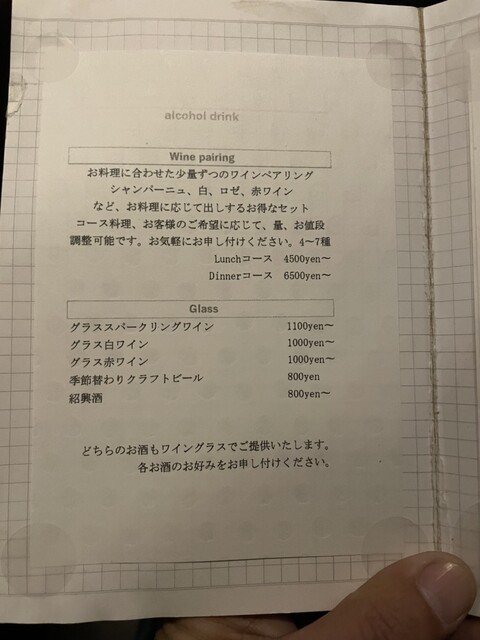 alcohol drink
Wine pairing
お料理に合わせた少量ずつのワインペアリング
シャンパーニュ、白、ロゼ、赤ワイン
など、お料理に応じて出しするお得なセット
コース料理、お客様のご希望に応じて、量、お値段
調整可能です。お気軽にお申し付けください。4～7種
Lunchコース 4500yen～
Dinnerコース 6500yen～
Glass
グラススパークリングワイン 1100yen～
グラス白ワイン 1000yen～
グラス赤ワイン 1000yen～
季節替わりクラフトビール 800yen
紹興酒 800yen～
どちらのお酒もワイングラスでご提供いたします。
各お酒のお好みをお申し付けください。